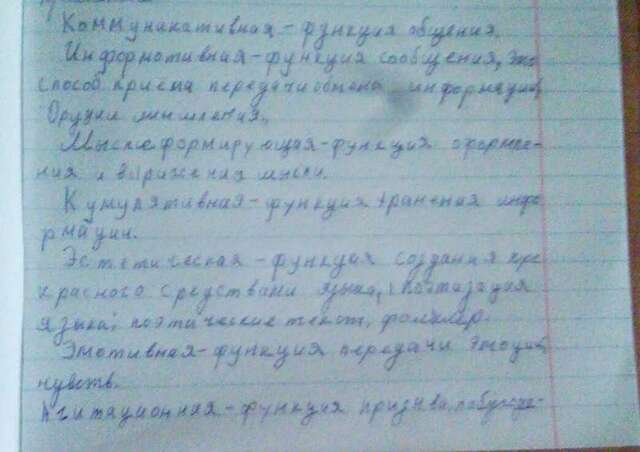 Коммуникативная - функция общения.
Информативная - функция сообщения, это
способ приема передачи обмена информации,
Орудие мышления.
Мыслеформирующая - функция оформле-
ния и выражения мысли.
Кумулятивная - функция хранения инфо
рмации.
Эстетическая - функция создания пре
красного средствами языка, поэтизация
языка; поэтические текст, фольклор.
Эмотивная - функция передачи эмоций,
чувств.
Агитационная - функция призыва, побужде-